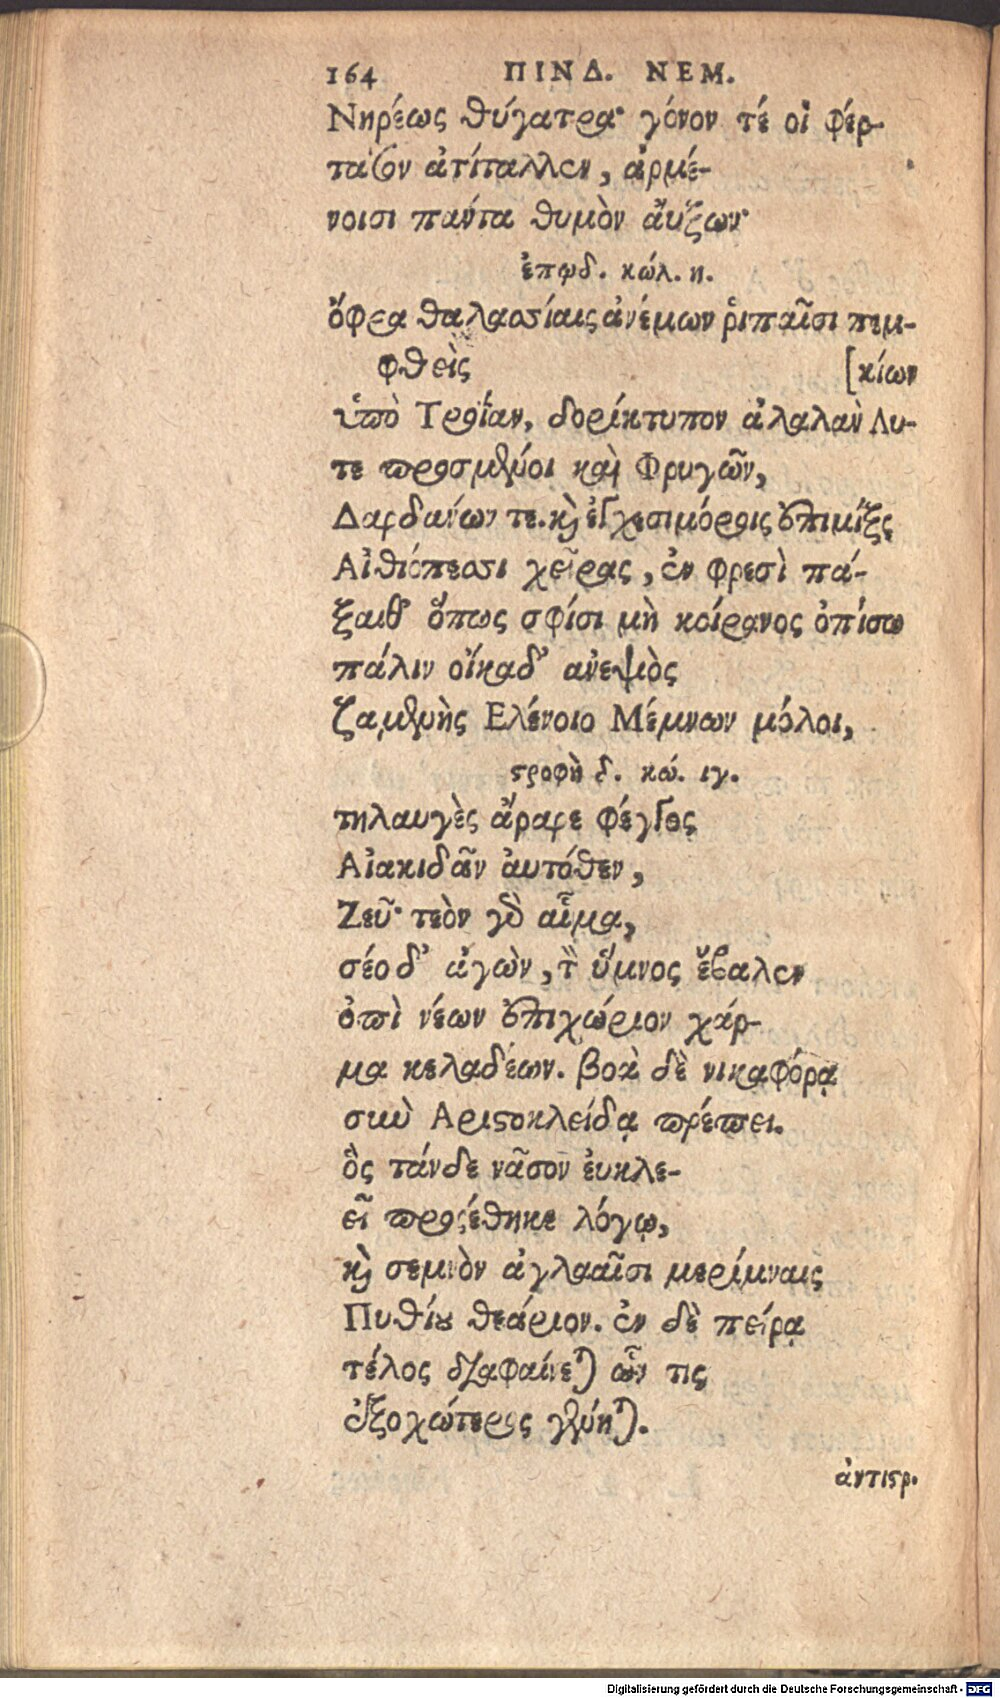 164 ΠΙΝΔ. ΝΕΜ.
Νηρέως θύγατρα· γόνον τέ οἱ φέρ-
τατον ἀτίταλλεν, ἀρμέ-
νοισι πάντα θυμὸν ἄυξων·
ἐπῳδ. κώλ. η.
ὄφρα θαλασσίαις ἀνέμων ῥιπαῖσι πεμ-
φθεὶς [κίων
ὑπὸ Τροΐαν, δορίκτυπον ἀλαλὰν Λυ-
τε προσμένοι καὶ Φρυγῶν,
Δαρδάνων τε. καὶ ἐγχεσιμόροις ἐπιμίξες
Αἰθιόπεσσι χεῖρας, ἐν φρεσὶ πά-
ξαιθ' ὅπως σφίσι μὴ κοίρανος ὀπίσω
πάλιν οἴκαδ' ἀνεψιὸς
ζαμενὴς Ελένοιο Μέμνων μόλοι,
στροφὴ δ. κώ. ιγ.
τηλαυγὲς ἄραρε φέγγος
Αἰακιδᾶν ἀυτόθεν,
Ζεῦ· τεὸν γὸ αἷμα,
σέο δ' ἀγὼν, τὸν ὕμνος ἔβαλεν
ὀπὶ νέων ἐπιχώριον χάρ-
μα κελαδέων. βοὰ δὲ νικαφόρᾳ
σὺν Αριστοκλείδᾳ πρέπει.
ὃς τάνδε νᾶσον ἐυκλε-
εῖ προσέθηκε λόγῳ,
καὶ σεμνὸν ἀγλααῖσι μερίμναις
Πυθίου θεάριον. ἐν δὲ πείρᾳ
τέλος διαφαίνεται ὧν τις
ἐξοχώτερος γένηται.
ἀντιστρ.
Digitalisierung gefördert durch die Deutsche Forschungsgemeinschaft - DFG